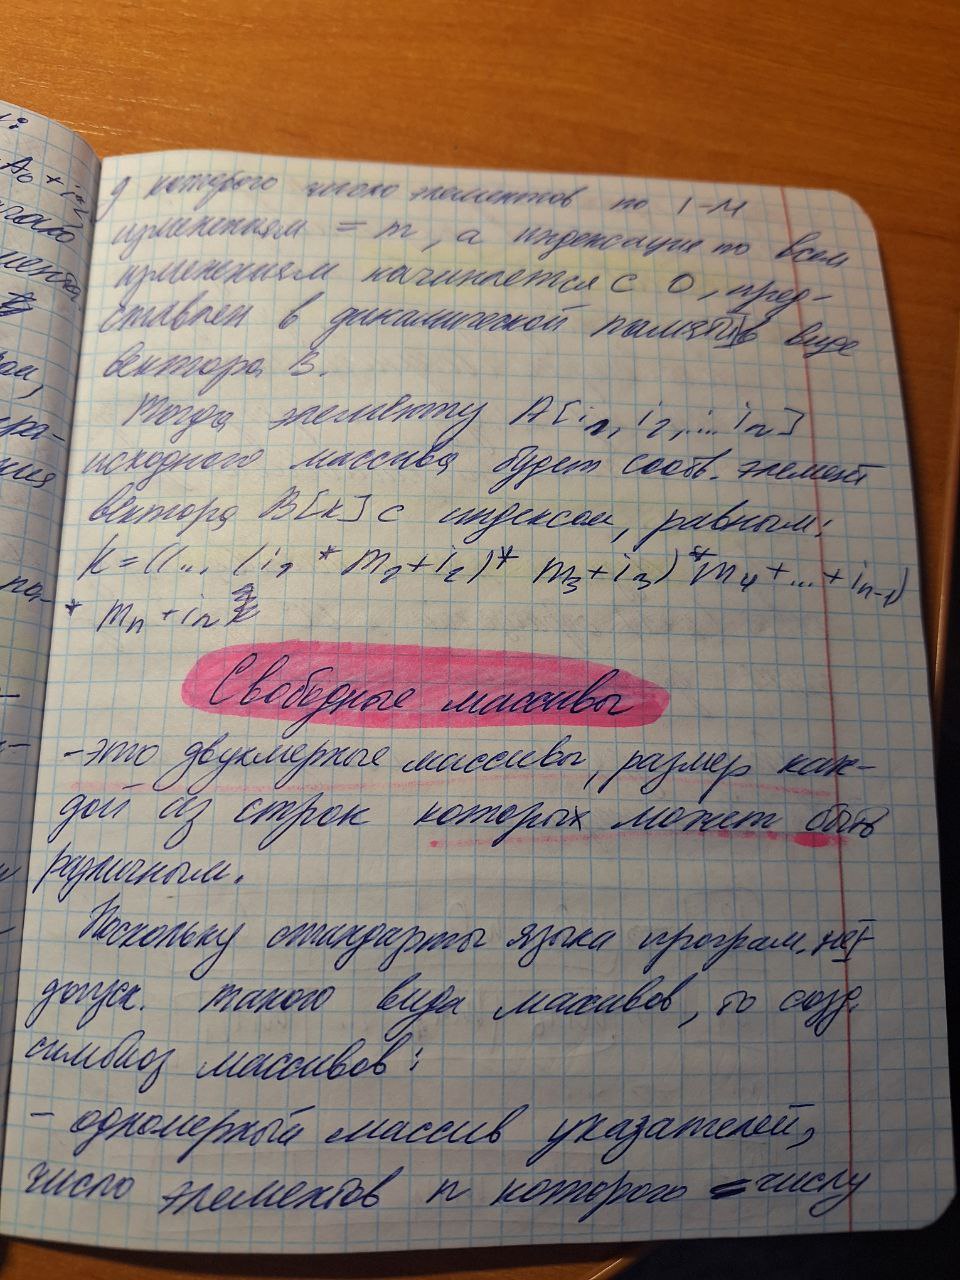 у которого число элементов по 1-м
измерениям = m, а индексация по всем
измерениям начинается с 0, пред-
ставлен в динамической памяти в виде
вектора B.
Тогда элементу A[i₁, i₂, ... iₙ]
исходного массива будет соотв. элемент
вектора B[k] с индексом, равным:
k = ((... (i₁ * m₂ + i₂) * m₃ + i₃) * m₄ + ... + iₙ₋₁)
* mₙ + iₙ
Свободные массивы
- это двухмерные массивы, размер каж-
дой из строк которых может быть
различным.
Поскольку стандарты языка програм. не
допуск. такого вида массивов, то созд.
симбиоз массивов:
- одномерный массив указателей,
число элементов n которого = числу